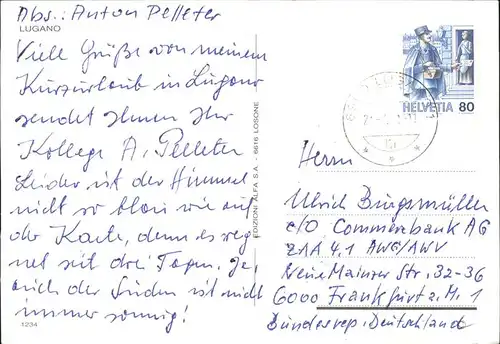 Abs.: Anton Pelleter
LUGANO
Viele Grüße von meinem
Kurzurlaub in Lugano
sendet Ihnen Ihr
Kollege A. Pelleter
Leider ist der Himmel
nicht so blau wie auf
der Karte, denn es reg
net seit drei Tagen. Ja,
auch der Süden ist nicht
immer sonnig!
1234
EDIZIONI ALFA S.A. - 6616 LOSONE
HELVETIA 80
Herrn
Ulrich Burgsmüller
c/o Commerzbank AG
ZIA 4.1 AWG/AWV
Neue Mainzer Str. 32-36
6000 Frankfurt a. M. 1
Bundesrep. Deutschland